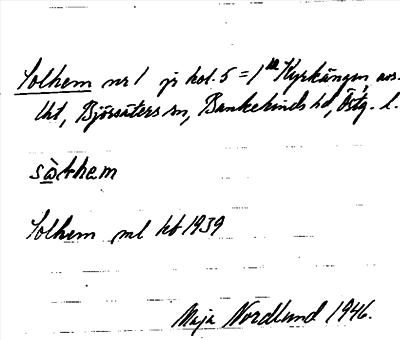 Solhem nr 1 jr kol. 5 = 1 ha Kyrkängen avs.
lht, Björsäters sn, Bankekinds hd, Östg. l.
Solhem ml kb 1939
Maja Nordlund 1946.